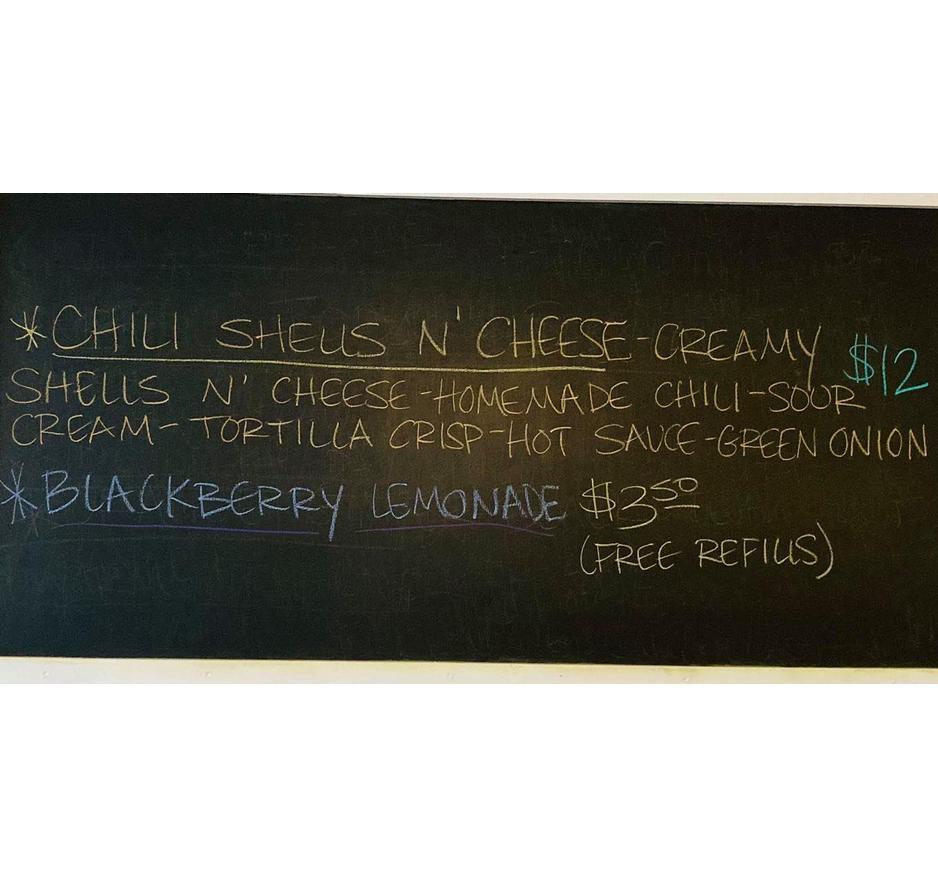 *CHILI SHELLS N' CHEESE-CREAMY
SHELLS N' CHEESE-HOMEMADE CHILI-SOUR $12
CREAM-TORTILLA CRISP-HOT SAUCE-GREEN ONION
*BLACKBERRY LEMONADE $3.50
(FREE REFILLS)